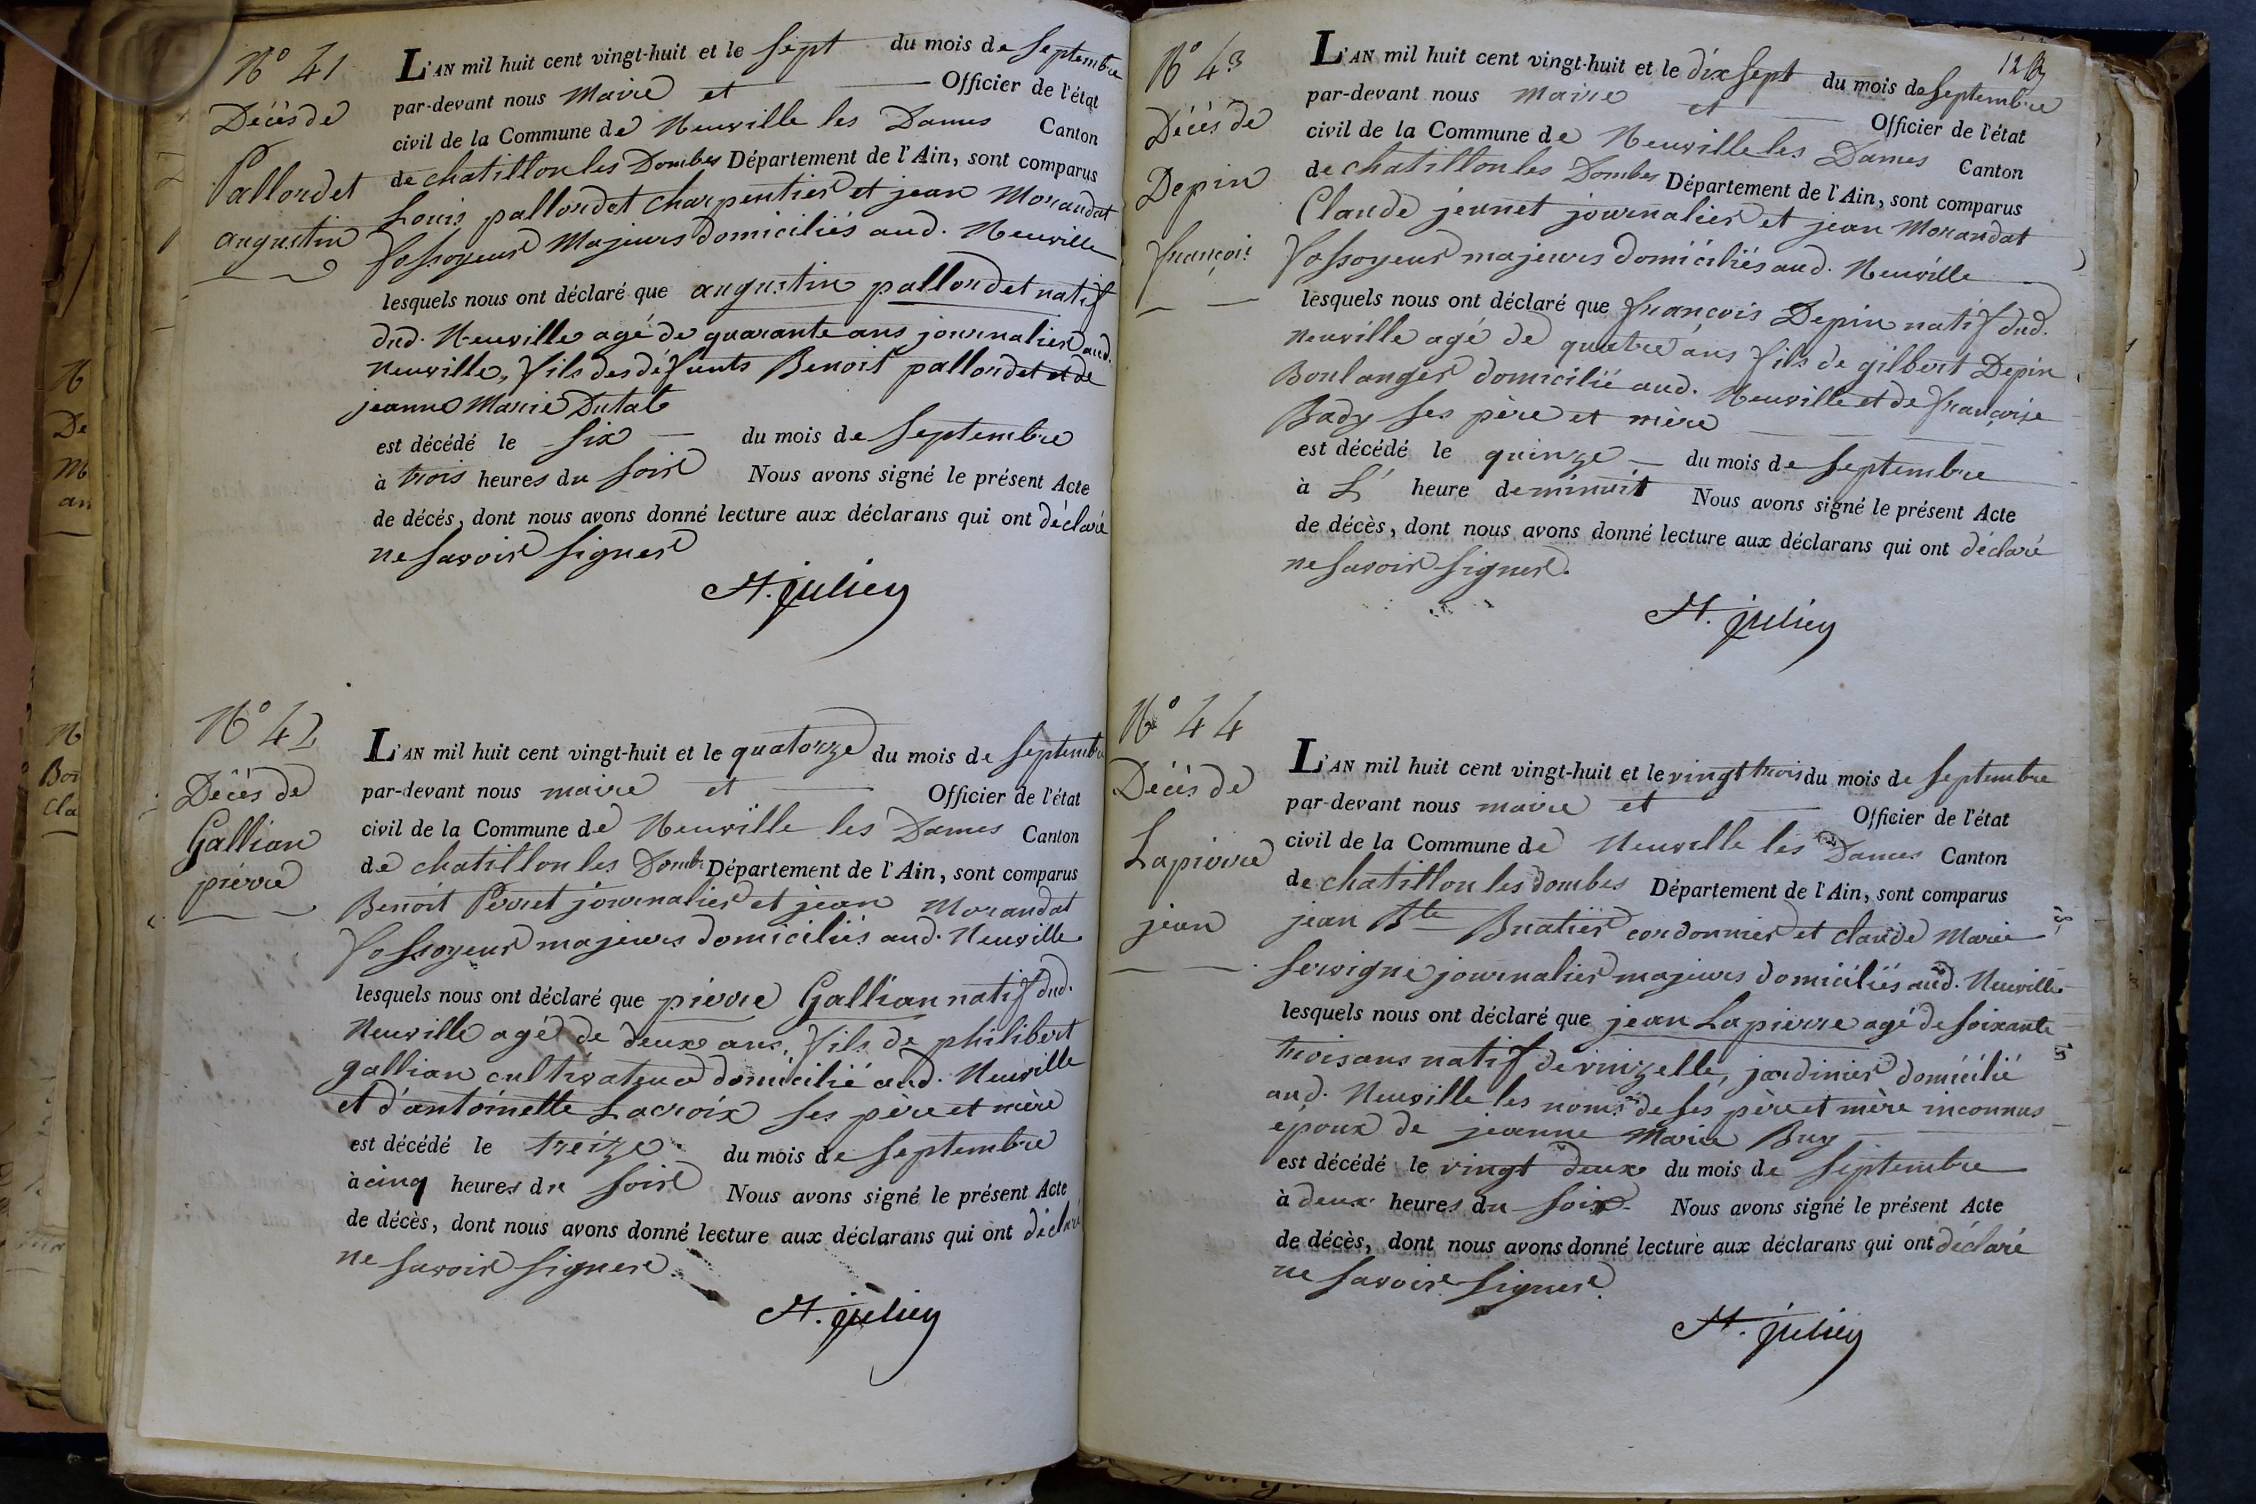 N° 41
Décès de
Pallordet
augustin
L'AN mil huit cent vingt-huit et le sept du mois de septembre
par-devant nous Maire et Officier de l'état
civil de la Commune de Neuville les Dames Canton
de chatillon les Dombes Département de l'Ain, sont comparus
Louis pallordet charpentier et jean Morandat
fossoyeur Majeurs domiciliés aud. Neuville
lesquels nous ont déclaré que augustin pallordet natif
dud. Neuville agé de quarante ans journalier aud.
Neuville, fils des défunts Benoit pallordet et de
jeanne Marie Dutal
est décédé le six du mois de septembre
à trois heures du soir Nous avons signé le présent Acte
de décés, dont nous avons donné lecture aux déclarans qui ont déclaré
ne savoir signer
St. julien
N° 42
Décès de
Gallian
pierre
L'AN mil huit cent vingt-huit et le quatorze du mois de septembre
par-devant nous maire et Officier de l'état
civil de la Commune de Neuville les Dames Canton
de chatillon les Dombes Département de l'Ain, sont comparus
Benoit Perret journalier et jean Morandat
fossoyeur majeurs domiciliés aud. Neuville
lesquels nous ont déclaré que pierre Gallian natif dud.
Neuville agé de deux ans, fils de philibert
gallian cultivateur domicilié aud. Neuville
et d'antoinette Lacroix ses père et mère
est décédé le treize du mois de septembre
à cinq heures du soir Nous avons signé le présent Acte
de décès, dont nous avons donné lecture aux déclarans qui ont déclaré
ne savoir signer.
St. julien
N° 43
Décès de
Depin
françois
L'AN mil huit cent vingt-huit et le dix sept du mois de septembre
par-devant nous maire et Officier de l'état
civil de la Commune de Neuville les Dames Canton
de chatillon les Dombes Département de l'Ain, sont comparus
Claude jeunet journalier et jean Morandat
fossoyeur majeurs domiciliés aud. Neuville
lesquels nous ont déclaré que françois Depin natif dud.
Neuville agé de quatre ans fils de gilbert Depin
Boulanger domicilié aud. Neuville et de françoise
Bady ses père et mère
est décédé le quinze du mois de septembre
à L' heure de minuit Nous avons signé le présent Acte
de décès, dont nous avons donné lecture aux déclarans qui ont déclaré
ne savoir signer.
St. julien
N° 44
Décès de
Lapierre
jean
L'AN mil huit cent vingt-huit et le vingt trois du mois de septembre
par-devant nous maire et Officier de l'état
civil de la Commune de Neuville les Dames Canton
de chatillon les dombes Département de l'Ain, sont comparus
jean Bte Buatier cordonnier et claude Marie
servigne journalier majeurs domiciliés aud. Neuville
lesquels nous ont déclaré que jean Lapierre agé de soixante
trois ans natif de vinzelle, jardinier domicilié
aud. Neuville les noms de ses père et mère inconnus
époux de jeanne Marie Buy
est décédé le vingt deux du mois de septembre
à deux heures du soir Nous avons signé le présent Acte
de décès, dont nous avons donné lecture aux déclarans qui ont déclaré
ne savoir signer.
St. julien